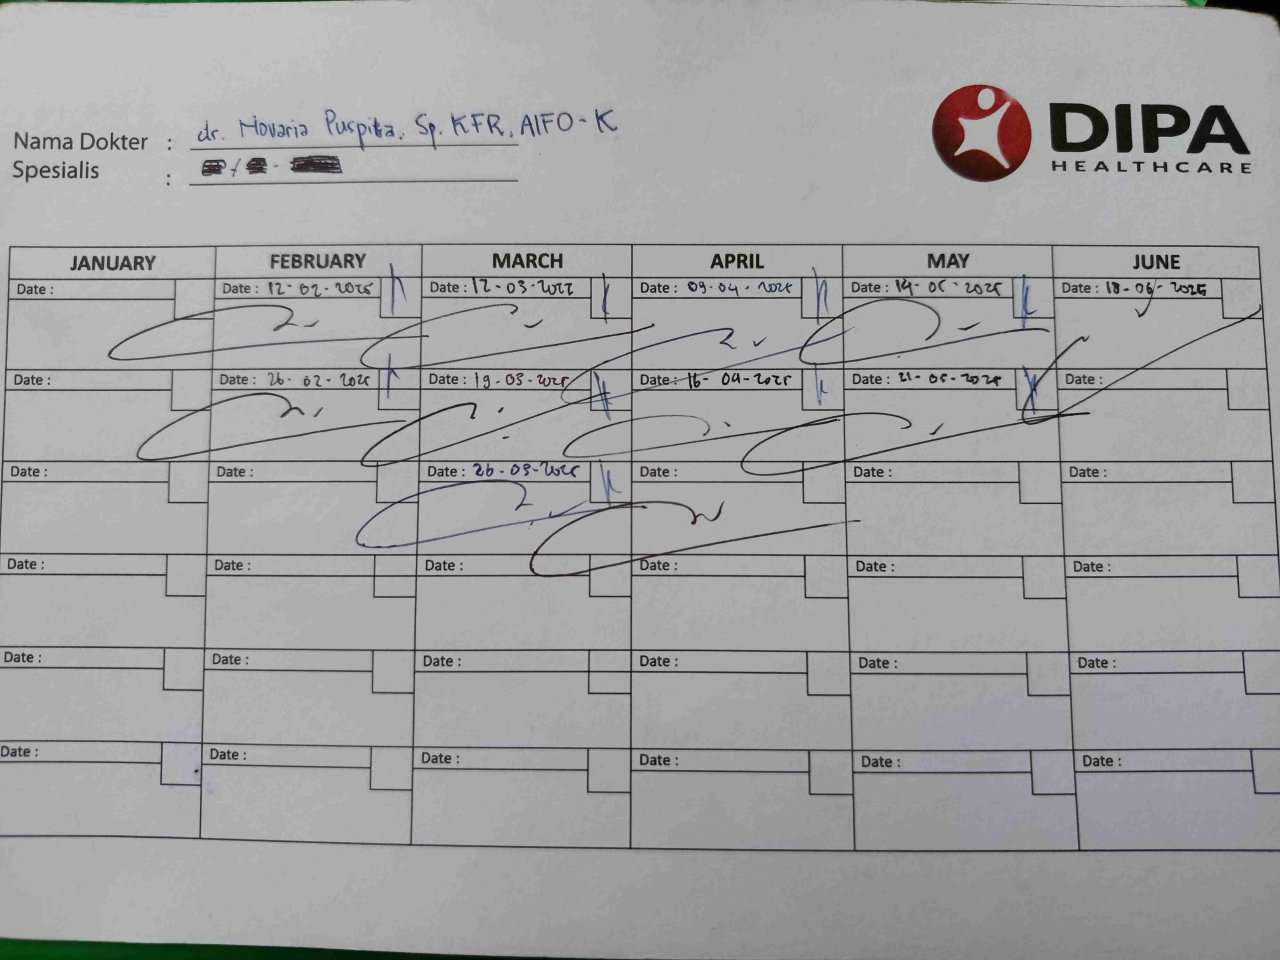 dr. Novaria Puspita, Sp. KFR, AIFO-K
Nama Dokter :
Spesialis :
DIPA
HEALTHCARE
JANUARY FEBRUARY MARCH APRIL MAY JUNE
Date : Date : 12-02-2025 Date : 12-03-2022 Date : 09-04-2025 Date : 14-05-2025 Date : 18-06-2025
Date : Date : 26-02-2025 Date : 19-03-2025 Date : 16-04-2025 Date : 21-05-2025 Date :
Date : Date : Date : 26-03-2025 Date : Date : Date :
Date : Date : Date : Date : Date : Date :
Date : Date : Date : Date : Date : Date :
Date : Date : Date : Date : Date : Date :